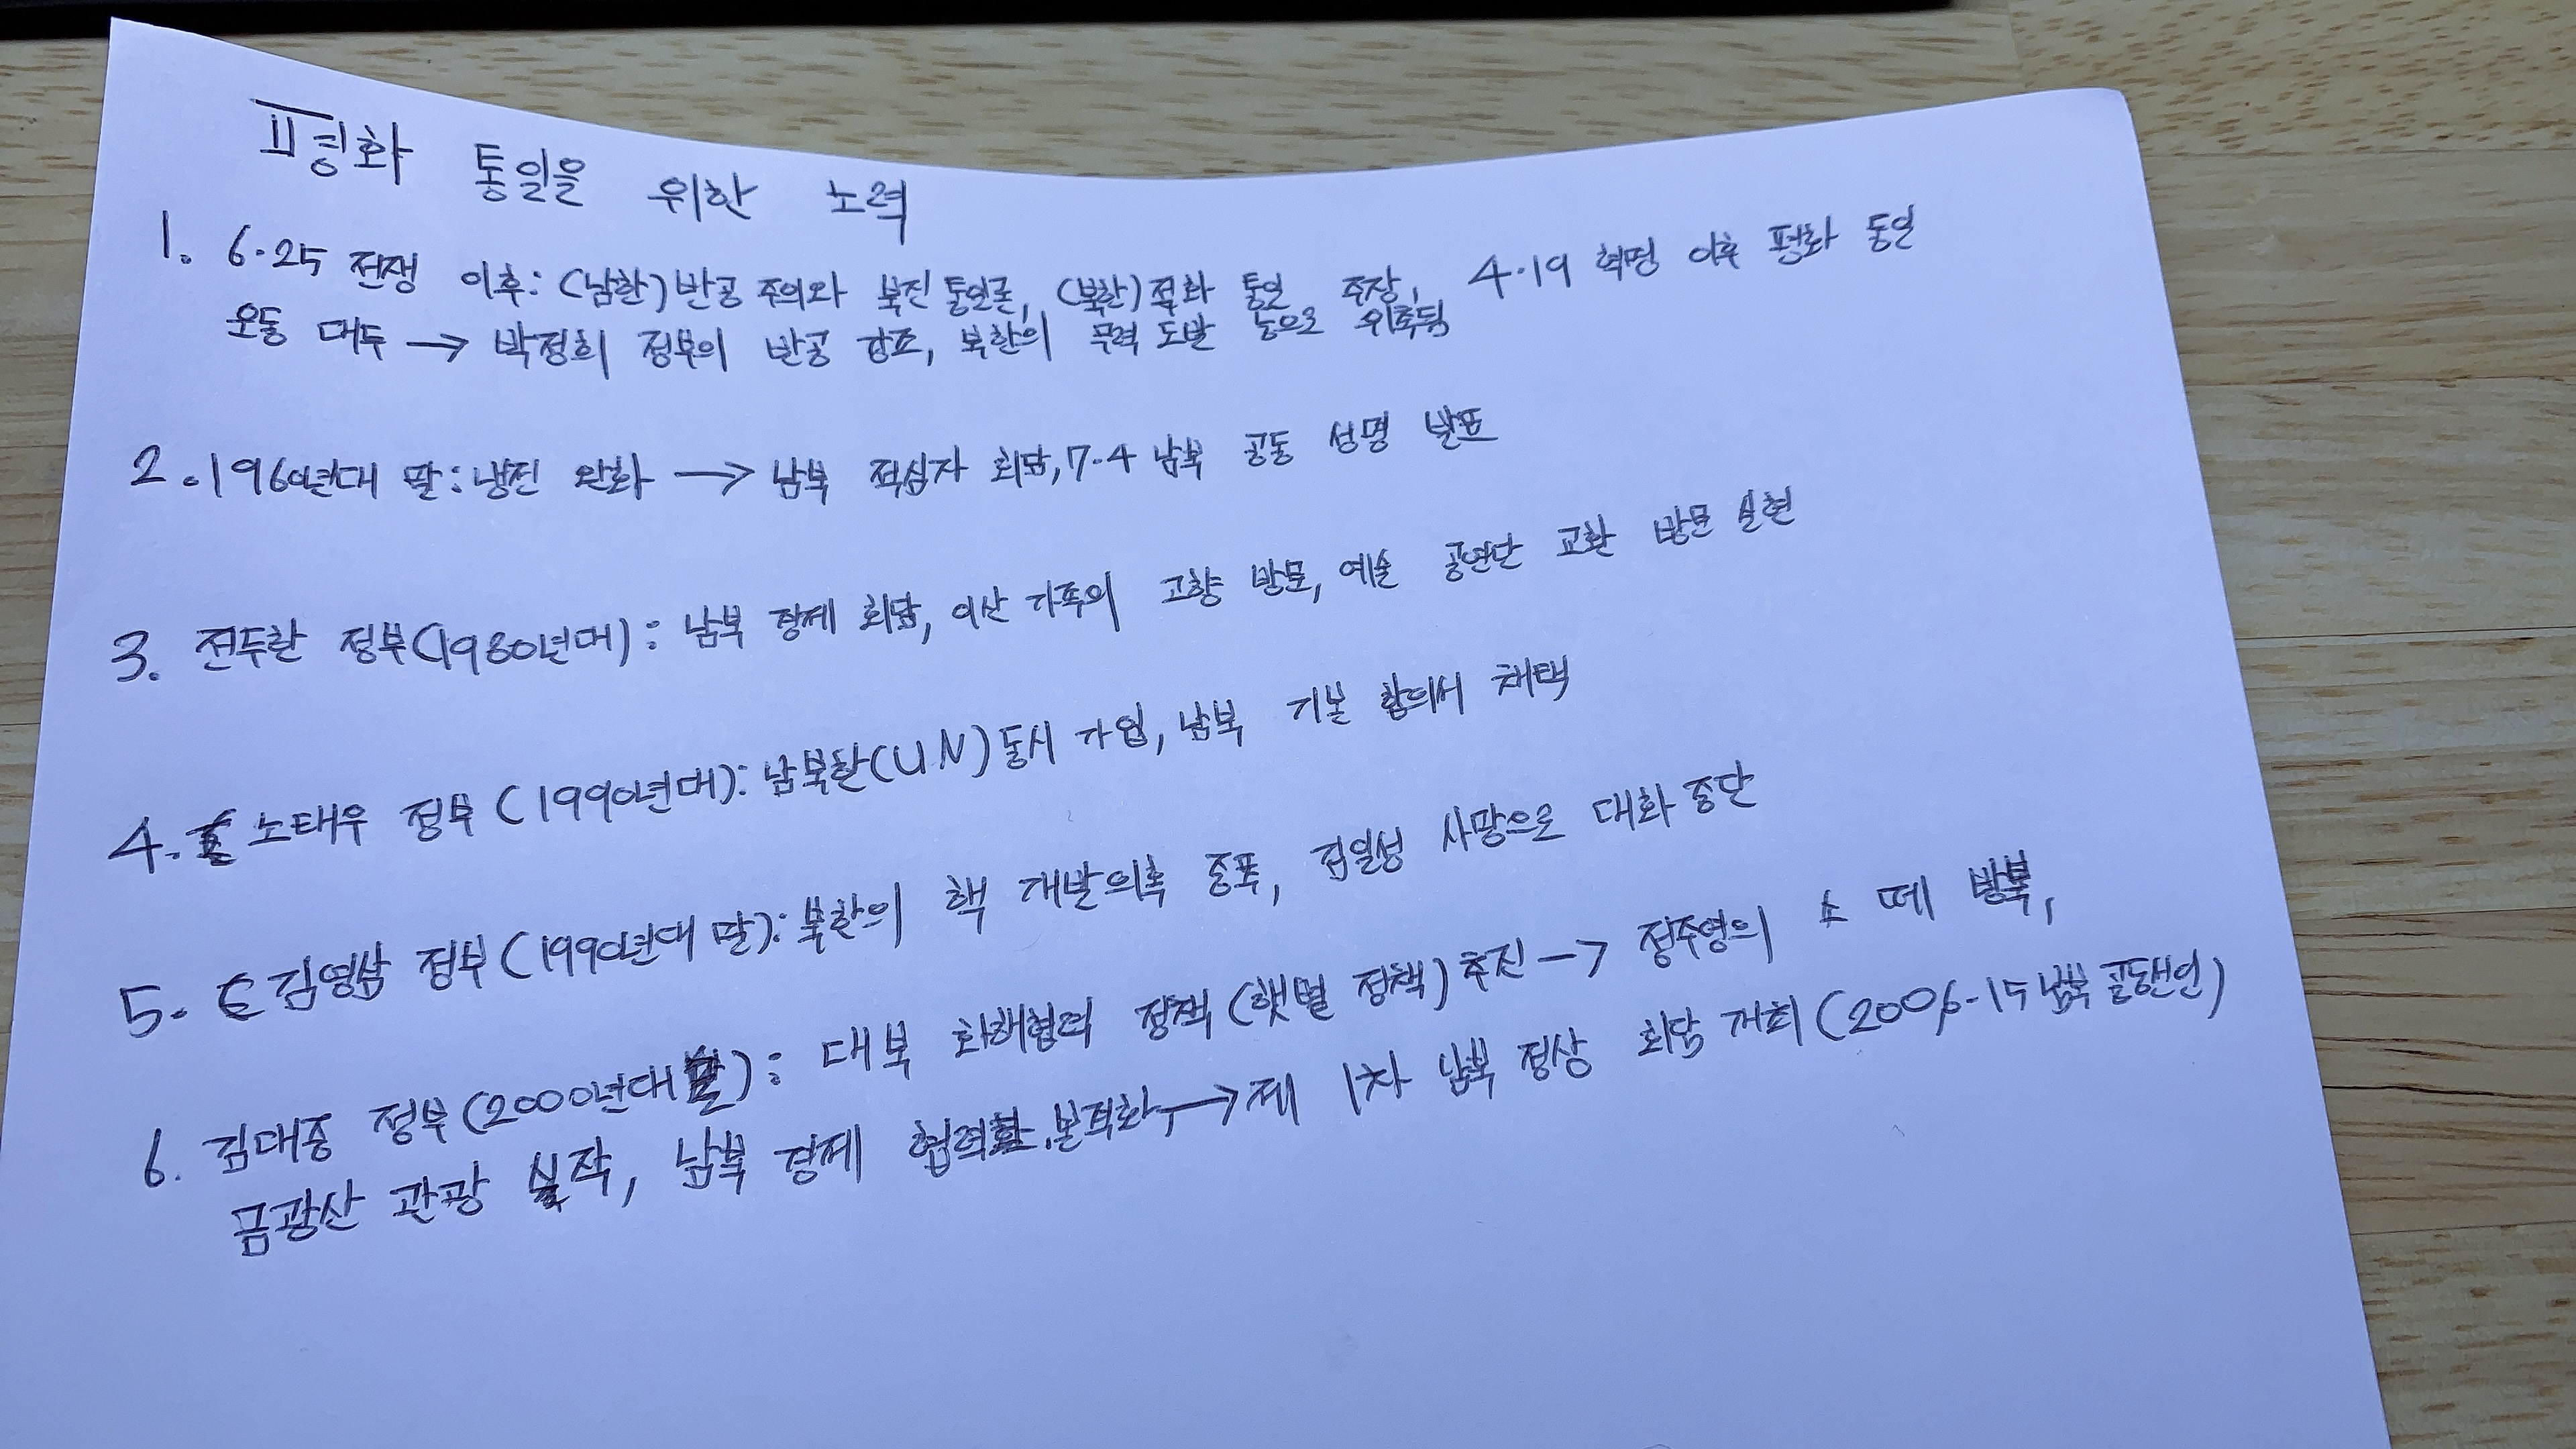 평화 통일을 위한 노력
1. 6·25 전쟁 이후: (남한) 반공 주의와 북진 통일론, (북한) 적화 통일 주장, 4·19 혁명 이후 평화 통일
운동 대두 → 박정희 정부의 반공 강조, 북한의 무력 도발 등으로 위축됨
2. 1960년대 말: 냉전 완화 → 남북 적십자 회담, 7·4 남북 공동 성명 발표
3. 전두환 정부(1980년대): 남북 경제 회담, 이산 가족의 고향 방문, 예술 공연단 교환 방문 실현
4. 노태우 정부(1990년대): 남북한(UN) 동시 가입, 남북 기본 합의서 채택
5. 김영삼 정부(1990년대 말): 북한의 핵 개발의혹 증폭, 김일성 사망으로 대화 중단
6. 김대중 정부(2000년대): 대북 화해협력 정책(햇볕 정책) 추진 → 정주영의 소 떼 방북,
금광산 관광 시작, 남북 경제 협력 본격화 → 제 1차 남북 정상 회담 개최(2006-15 남북 공동선언)